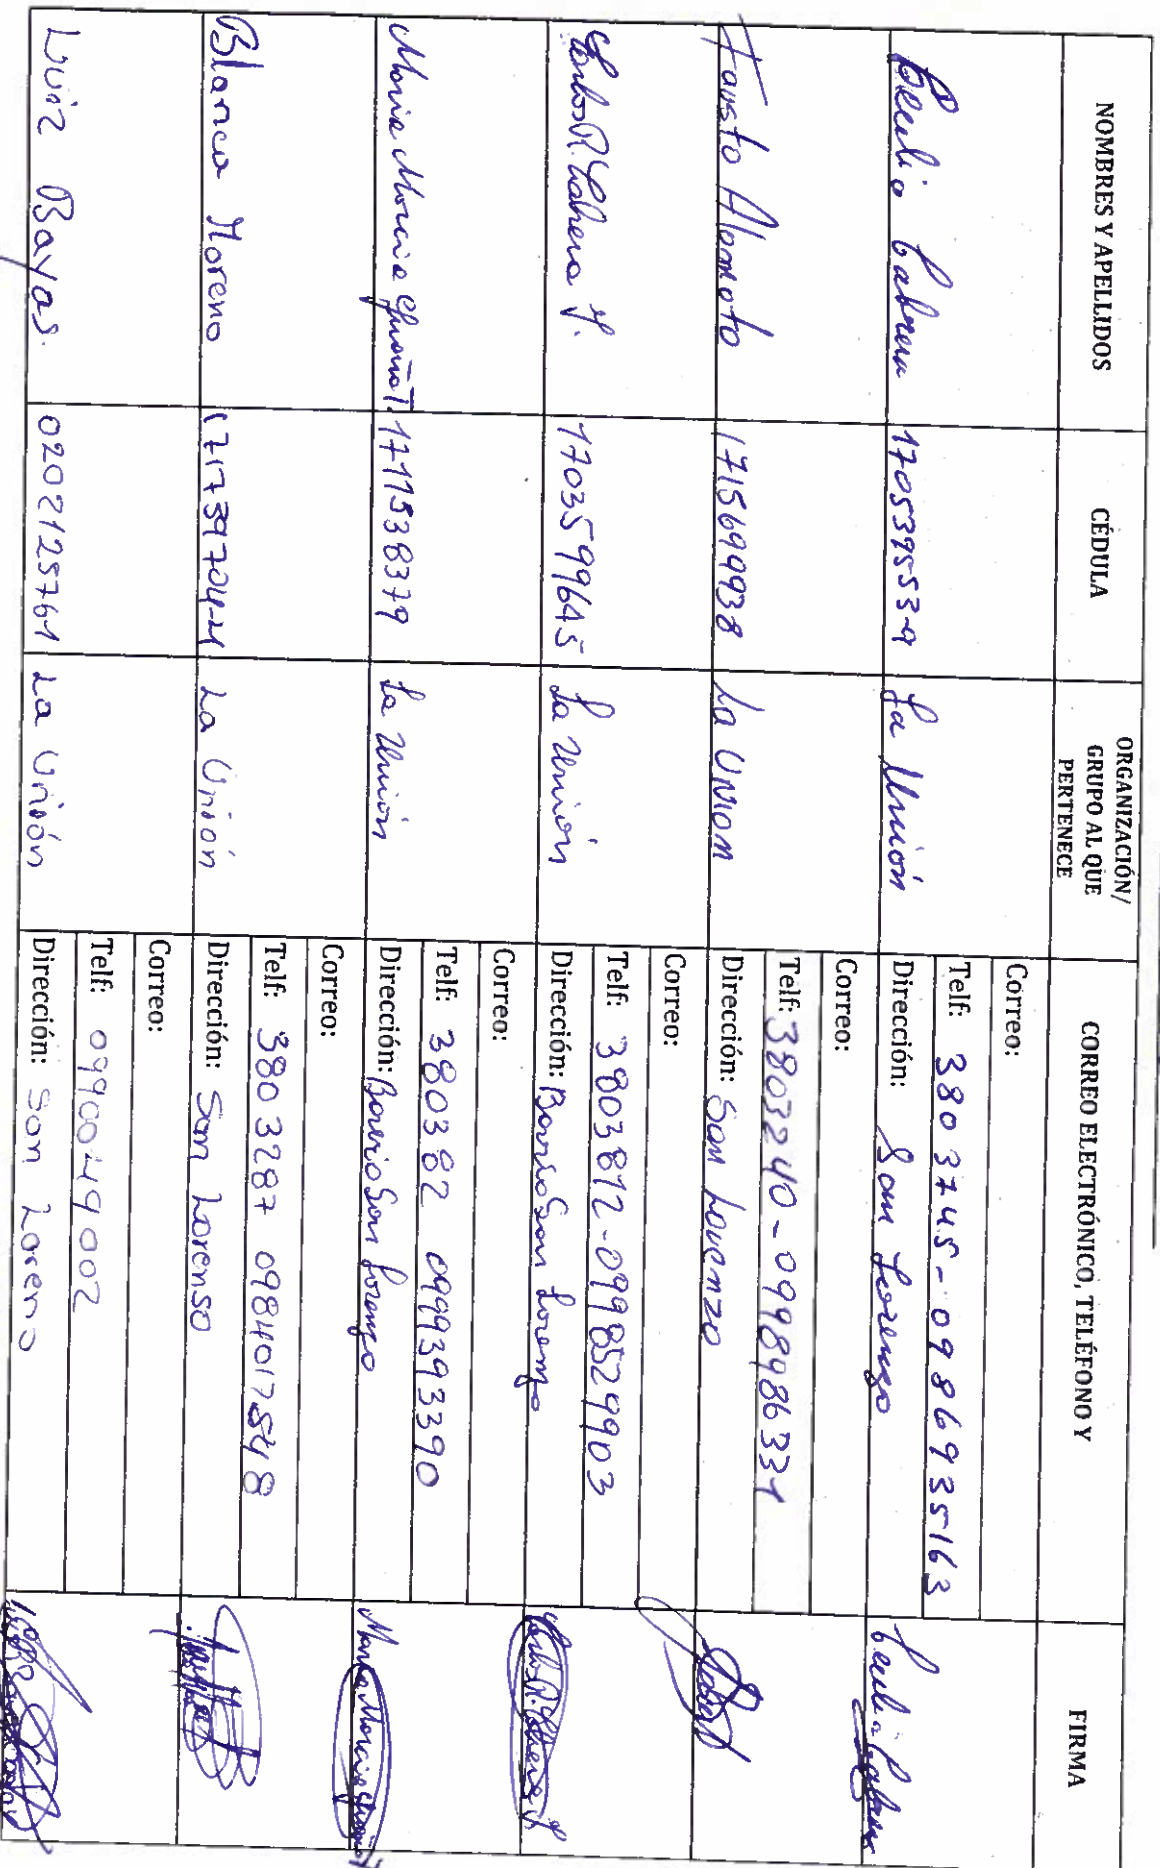 NOMBRES Y APELLIDOS
CÉDULA
ORGANIZACIÓN/
GRUPO AL QUE
PERTENECE
CORREO ELECTRÓNICO, TELÉFONO Y
FIRMA
Cecilia Cabrera
170539553-9
La Unión
Correo:
Telf: 3803745-0986935163
Dirección: San Lorenzo
Cecilia Cabrera
Fausto Alomoto
1715699938
La Union
Correo:
Telf: 3803240-0998986331
Dirección: San Lorenzo
Carlos R. Cabrera Y.
1703599645
La Unión
Correo:
Telf: 3803812-0998529903
Dirección: Barrio San Lorenzo
Carlos R. Cabrera Y.
Maria Morcia T.
1711538379
La Unión
Correo:
Telf: 380382 0999393390
Dirección: Barrio San Lorenzo
Blanca Moreno
171739704-4
La Unión
Correo:
Telf: 3803287 0984017548
Dirección: San Lorenso
Luiz Bayas.
0202125761
La Unión
Correo:
Telf: 0990049002
Dirección: San Loreno